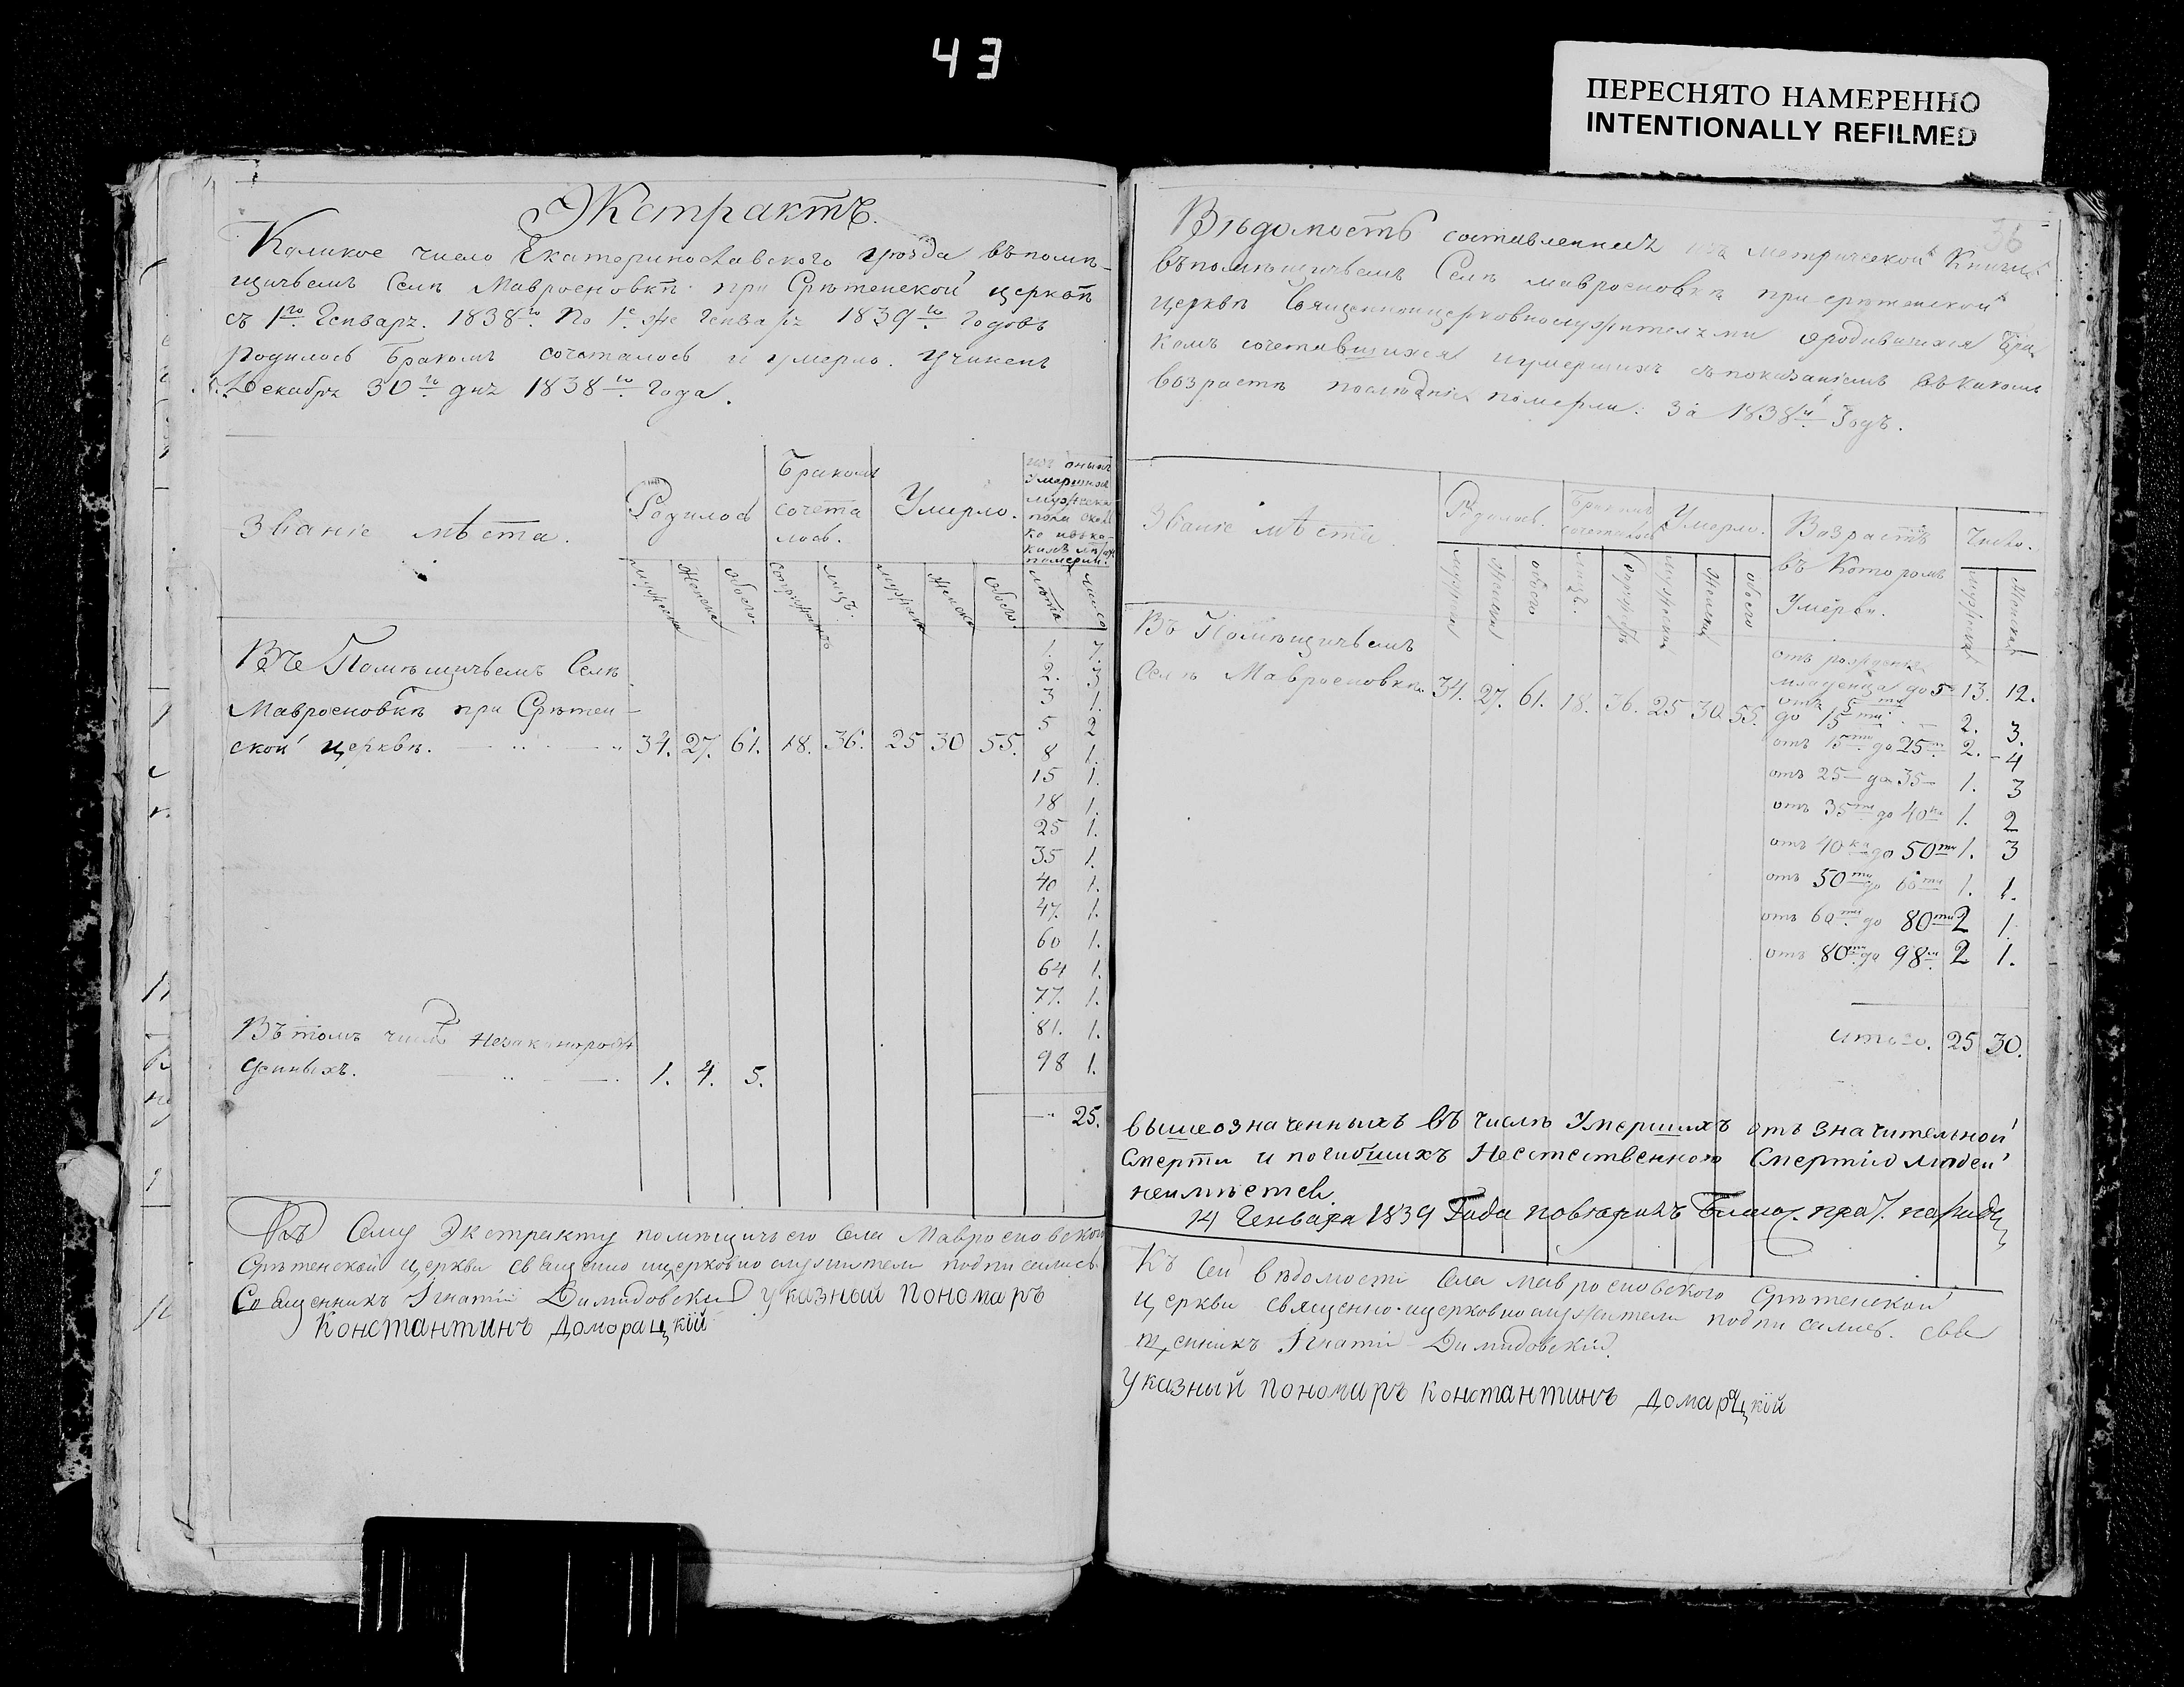 43
ПЕРЕСНЯТО НАМЕРЕННО
INTENTIONALLY REFILMED
Экстрактъ.
Коликое число Екатеринославского уѣзда въ помѣ-
щичьемъ Селѣ Мавроеновкѣ при Срѣтенской церкви
съ 1го Генваря 1838го По 1е же Генваря 1839го годовъ
родилось Бракомъ сочеталось и умерло. Учиненъ
Декабря 30го дня 1838го года.
Званіе мѣста.
Родилось
Бракомъ
сочета
лось.
Умерло.
изъ оныхъ
Умершихъ
мужеска
пола сколь
ко
померли.
мужеска
женска
обоего
лицъ
мужеска
женска
обоего
лѣта
число
1. 7.
2. 3
3 1.
5 2
8 1.
15 1.
18 1.
25 1.
35 1.
40 1.
47. 1.
60 1.
64 1.
77. 1.
81. 1.
98 1.
25.
Въ Помѣщичьемъ Селѣ
Мавроеновкѣ при Срѣтен-
ской церквѣ. 34. 27. 61. 18. 36. 25 30 55.
Въ томъ числѣ Незаконорож
денныхъ. 1. 4. 5.
Къ Сему Экстракту помѣщичьего Села Мавроеновской
Срѣтенской церкви священно ицерковно служители подписались
Священникъ Игнатій Димидовскій указный Пономаръ
Константинъ Доморацкій
36
Вѣдомость составленная изъ метрической Книги
въ помѣщичьемъ Селѣ мавроеновкѣ при срѣтенской
церквѣ Священноицерковнослужителями ородившихся Бра
комъ сочетавшихся иумершихъ съ показаніемъ въ какомъ
возрастѣ послѣдніе померли: за 1838й Годъ.
Званіе мѣста.
Родилось.
Бракомъ
сочеталось
Умерло.
Возрастъ
въ Которомъ
Умерли.
Число.
мужеска
женска
обоего
лицъ.
мужеска
женска
обоего
мужеска
женска
Въ Помѣщичьемъ
Селѣ Мавроеновкѣ. 34. 27. 61. 18. 36. 25 30 55.
отъ рожденія
младенца до 5 13. 12.
отъ 5ти
до 15ти 2. 3.
отъ 15ти до 25ти 2. 4
отъ 25 до 35 1. 3
отъ 35ти до 40ка 1. 2
отъ 40ка до 50ти 1. 3
отъ 50ти до 60ти 1. 1.
отъ 60ти до 80ти 2 1.
отъ 80ти до 98ми 2 1.
итого. 25 30.
вышеозначенныхъ въ числѣ Умершихъ отъ значительной
Смерти и погибшихъ Неестественною Смертію людей
неимѣетсѧ.
14 Генваря 1839 Года
Къ Сей вѣдомости Села мавроеновского Срѣтенской
церкви священно-ицерковнослужители подписались. свя
щенникъ Игнатій Димидовскій.
указный Пономаръ Константинъ Домарацкій